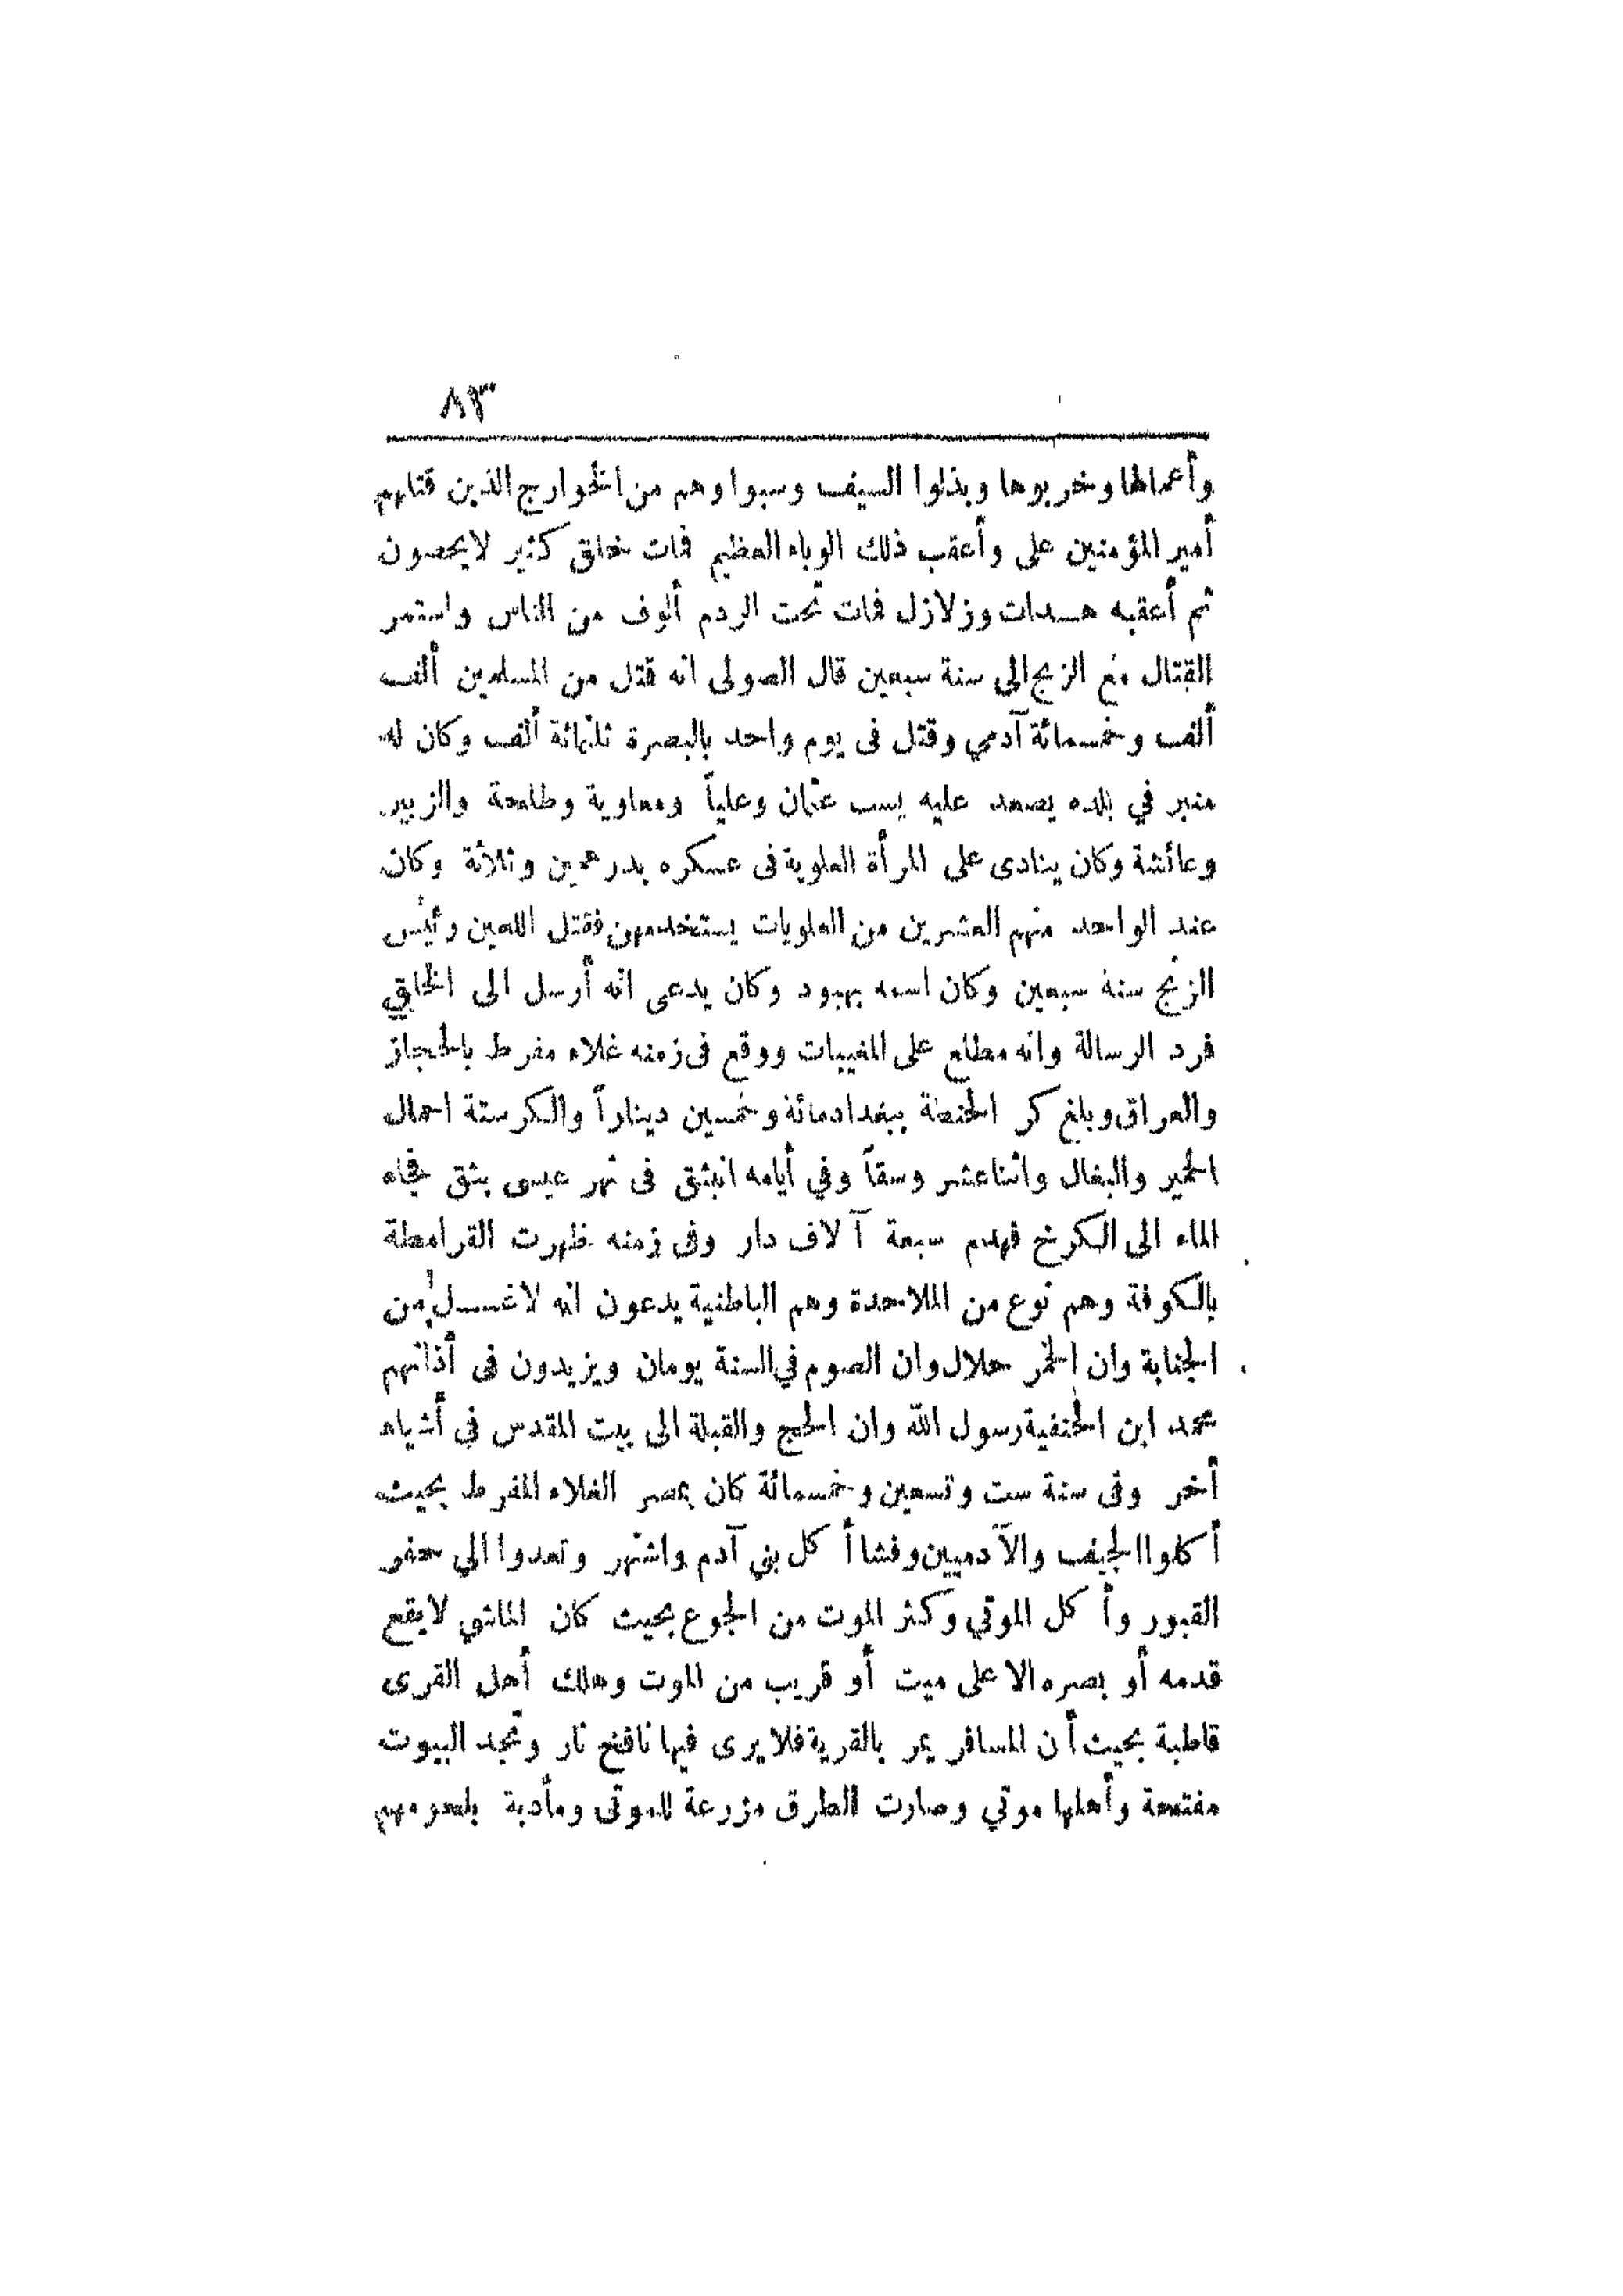 ٨٣
وأعمالها وخربوها وبذلوا السيف وسبوا وهم من الخوارج الذين قتلهم
أمير المؤمنين على وأعقب ذلك الوباء العظيم فمات خلق كثير لا يحصون
ثم أعقبه هدات وزلازل فمات تحت الردم ألوف من الناس واستمر
القتال مع الزنج الى سنة سبعين قال الصولى انه قتل من المسلمين ألف
ألف وخمسمائة آدمي وقتل فى يوم واحد بالبصرة ثلثمائة ألف وكان له
منبر في بلده يصعد عليه يسب عثمان وعلياً ومعاوية وطلحة والزبير
وعائشة وكان ينادى على المرأة العلوية فى عسكره بدرهمين وثلاثة وكان
عند الواحد منهم العشرين من العلويات يستخدمهن فقتل اللعين رئيس
الزنج سنة سبعين وكان اسمه بهبود وكان يدعى انه أرسل الى الخلق
فرد الرسالة وانه مطلع على المغيبات ووقع فى زمنه غلاء مفرط بالحجاز
والعراق وبلغ كر الحنطة ببغداد مائة وخمسين ديناراً والكر ستة احمال
الحمير والبغال واثنا عشر وسقاً وفي أيامه انبثق فى نهر عيسى بثق فجاء
الماء الى الكرخ فهدم سبعة آلاف دار وفى زمنه ظهرت القرامطة
بالكوفة وهم نوع من الملاحدة وهم الباطنية يدعون انه لا غسل من
الجنابة وان الخمر حلال وان الصوم في السنة يومان ويزيدون فى أذانهم
محمد ابن الحنفية رسول الله وان الحج والقبلة الى بيت المقدس فى أشياء
أخر وفى سنة ست وتسعين وخمسمائة كان بمصر الغلاء المفرط بحيث
أكلوا الجيف والآدميين وفشا أكل بني آدم واشتهر وتعدوا الي حفر
القبور وأكل الموتي وكثر الموت من الجوع بحيث كان الماشي لا يقع
قدمه أو بصره الا على ميت أو قريب من الموت وهلك أهل القرى
قاطبة بحيث أن المسافر يمر بالقرية فلا يرى فيها نافخ نار وتجد البيوت
مفتحة وأهلها موتي وصارت الطرق مزرعة للموتى ومأدبة بلحومهم